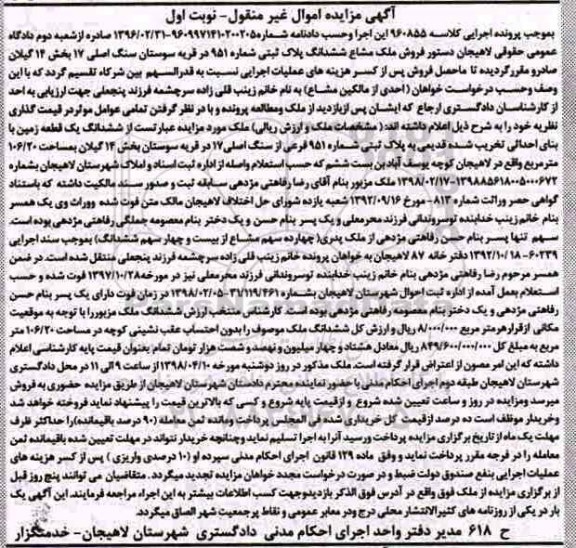 آگهی مزایده اموال غیر منقول- نوبت اول
بموجب پرونده اجرایی کلاسه ۹۶۰۸۵۵ این اجرا وحسب دادنامه شماره ۹۶۰۹۹۷۱۴۱۰۲۰۰۲۰۵-۱۳۹۶/۰۲/۳۱ صادره ازشعبه دوم دادگاه
عمومی حقوقی لاهیجان دستور فروش ملک مشاع ششدانگ پلاک ثبتی شماره ۹۵۱ در قریه سوستان سنگ اصلی ۱۷ بخش ۱۴ گیلان
صادرو مقرر گردیده تا ماحصل فروش پس از کسر هزینه های عملیات اجرایی نسبت به قدرالسهم بین شرکاء تقسیم گردد که با این
وصف وحسب درخواست خواهان (احدی از مالکین مشاع) به نام خانم زینب قلی زاده سرچشمه فرزند پنجعلی جهت ارزیابی به احد
از کارشناسان دادگستری ارجاع که ایشان پس ازبازدید از ملک ومطالعه پرونده و با در نظر گرفتن تمامی عوامل موثر در قیمت گذاری
نظریه خود را به شرح ذیل اعلام داشته اند: (مشخصات ملک و ارزش ریالی) ملک مورد مزایده عبارتست از ششدانگ یک قطعه زمین با
بنای احداثی تخریب شده قدیمی به پلاک ثبتی شماره ۹۵۱ فرعی از سنگ اصلی ۱۷ در قریه سوستان بخش ۱۴ گیلان بمساحت ۱۰۶/۲۰
مترمربع واقع در لاهیجان کوچه یوسف آبادبن بست ششم که حسب استعلام واصله از اداره ثبت اسناد و املاک شهرستان لاهیجان بشماره
۱۳۹۸۸۵۶۱۸۰۰۵۰۰۰۶۷۲-۱۳۹۸/۰۲/۱۷ ملک مزبور بنام آقای رضا رفاهتی مژدهی سابقه ثبت و صدور سند مالکیت داشته که باستناد
گواهی حصر وراثت شماره ۸۱۳- مورخ ۱۳۹۲/۰۹/۱۶ شعبه یازده شورای حل اختلاف لاهیجان مالک متن فوت شده ووراث وی یک همسر
بنام خانم زینب خدابنده توسروندانی فرزند محرمعلی و یک پسر بنام حسن و یک دختر بنام معصومه جملگی رفاهتی مژدهی بوده است.
سهم تنها پسر بنام حسن رفاهتی مژدهی از ملک پدری( چهارده سهم مشاع از بیست و چهار سهم ششدانگ) بموجب سند اجرایی
۶۰۲۳۹- ۱۳۹۲/۱۰/۱۸ دفتر خانه ۸۷ لاهیجان به خواهان پرونده خانم زینب قلی زاده سرچشمه فرزند پنجعلی منتقل شده است. در ضمن
همسر مرحوم رضا رفاهتی مژدهی بنام خانم زینب خدابنده توسروندانی فرزند محرمعلی نیز در مورخه ۱۳۹۷/۱۰/۲۸ فوت شده و حسب
استعلام بعمل آمده از اداره ثبت احوال شهرستان لاهیجان بشماره ۳۱/۱۱۹/۴۶۱- ۱۳۹۸/۰۲/۰۵ در زمان فوت دارای یک پسر بنام حسن
رفاهتی مژدهی و یک دختر بنام معصومه رفاهتی مژدهی بوده است. کارشناس منتخب ارزش ششدانگ ملک مزبوررا با توجه به موقعیت
مکانی ازقرارهرمتر مربع ۸/۰۰۰/۰۰۰ ریال و ارزش کل ششدانگ ملک موصوف را بدون احتساب عقب نشینی کوچه در مساحت ۱۰۶/۲۰ متر
مربع به مبلغ کل ۸۴۹/۶۰۰/۰۰۰ ریال معادل هشتاد و چهار میلیون و نهصد و شصت هزار تومان تمام بعنوان قیمت پایه کارشناسی اعلام
داشته که این امر مصون از اعتراض قرار گرفته است. ملک مذکور در روز دوشنبه مورخه ۱۳۹۸/۰۴/۱۰ از ساعت ۹ الی ۱۱ در محل دادگستری
شهرستان لاهیجان طبقه دوم اجرای احکام مدنی با حضور نماینده محترم دادستان شهرستان لاهیجان از طریق مزایده حضوری به فروش
میرسد ومزایده در روز و ساعت تعیین شده شروع و ازقیمت پایه شروع و کسی که بالاترین قیمت را پیشنهاد نماید فروخته خواهد شد
وخریدار موظف است ده درصد ازقیمت کل خریداری شده فی المجلس پرداخت ومانده ثمن معامله (۹۰ درصد باقیمانده)را حداکثر ظرف
مهلت یک ماه از تاریخ برگزاری مزایده پرداخت ورسید آنرا به اجرا تسلیم نماید وچنانچه خریدار نتواند در مهلت تعیین شده باقیمانده ثمن
معامله را در فرجه مقرر پرداخت نماید و وفق ماده ۱۲۹ قانون اجرای احکام مدنی سپرده او (۱۰ درصدی واریزی ) پس از کسر هزینه های
عملیات اجرایی بنفع صندوق دولت ضبط و در صورت درخواست مجدد خواهان مزایده تجدید میگردد. متقاضیان می توانند پنج روز قبل
از برگزاری مزایده از ملک فوق واقع در آدرس فوق الذکر بازدید وجهت کسب اطلاعات بیشتر به این اجراء مراجعه فرمایند. این آگهی یک
بار در یکی از روزنامه های کثیرالانتشار محلی درج ودر معابر عمومی و نقاط پرجمعیت شهر الصاق میگردد.
ح ۶۱۸ مدیر دفتر واحد اجرای احکام مدنی دادگستری شهرستان لاهیجان- خدمتگزار